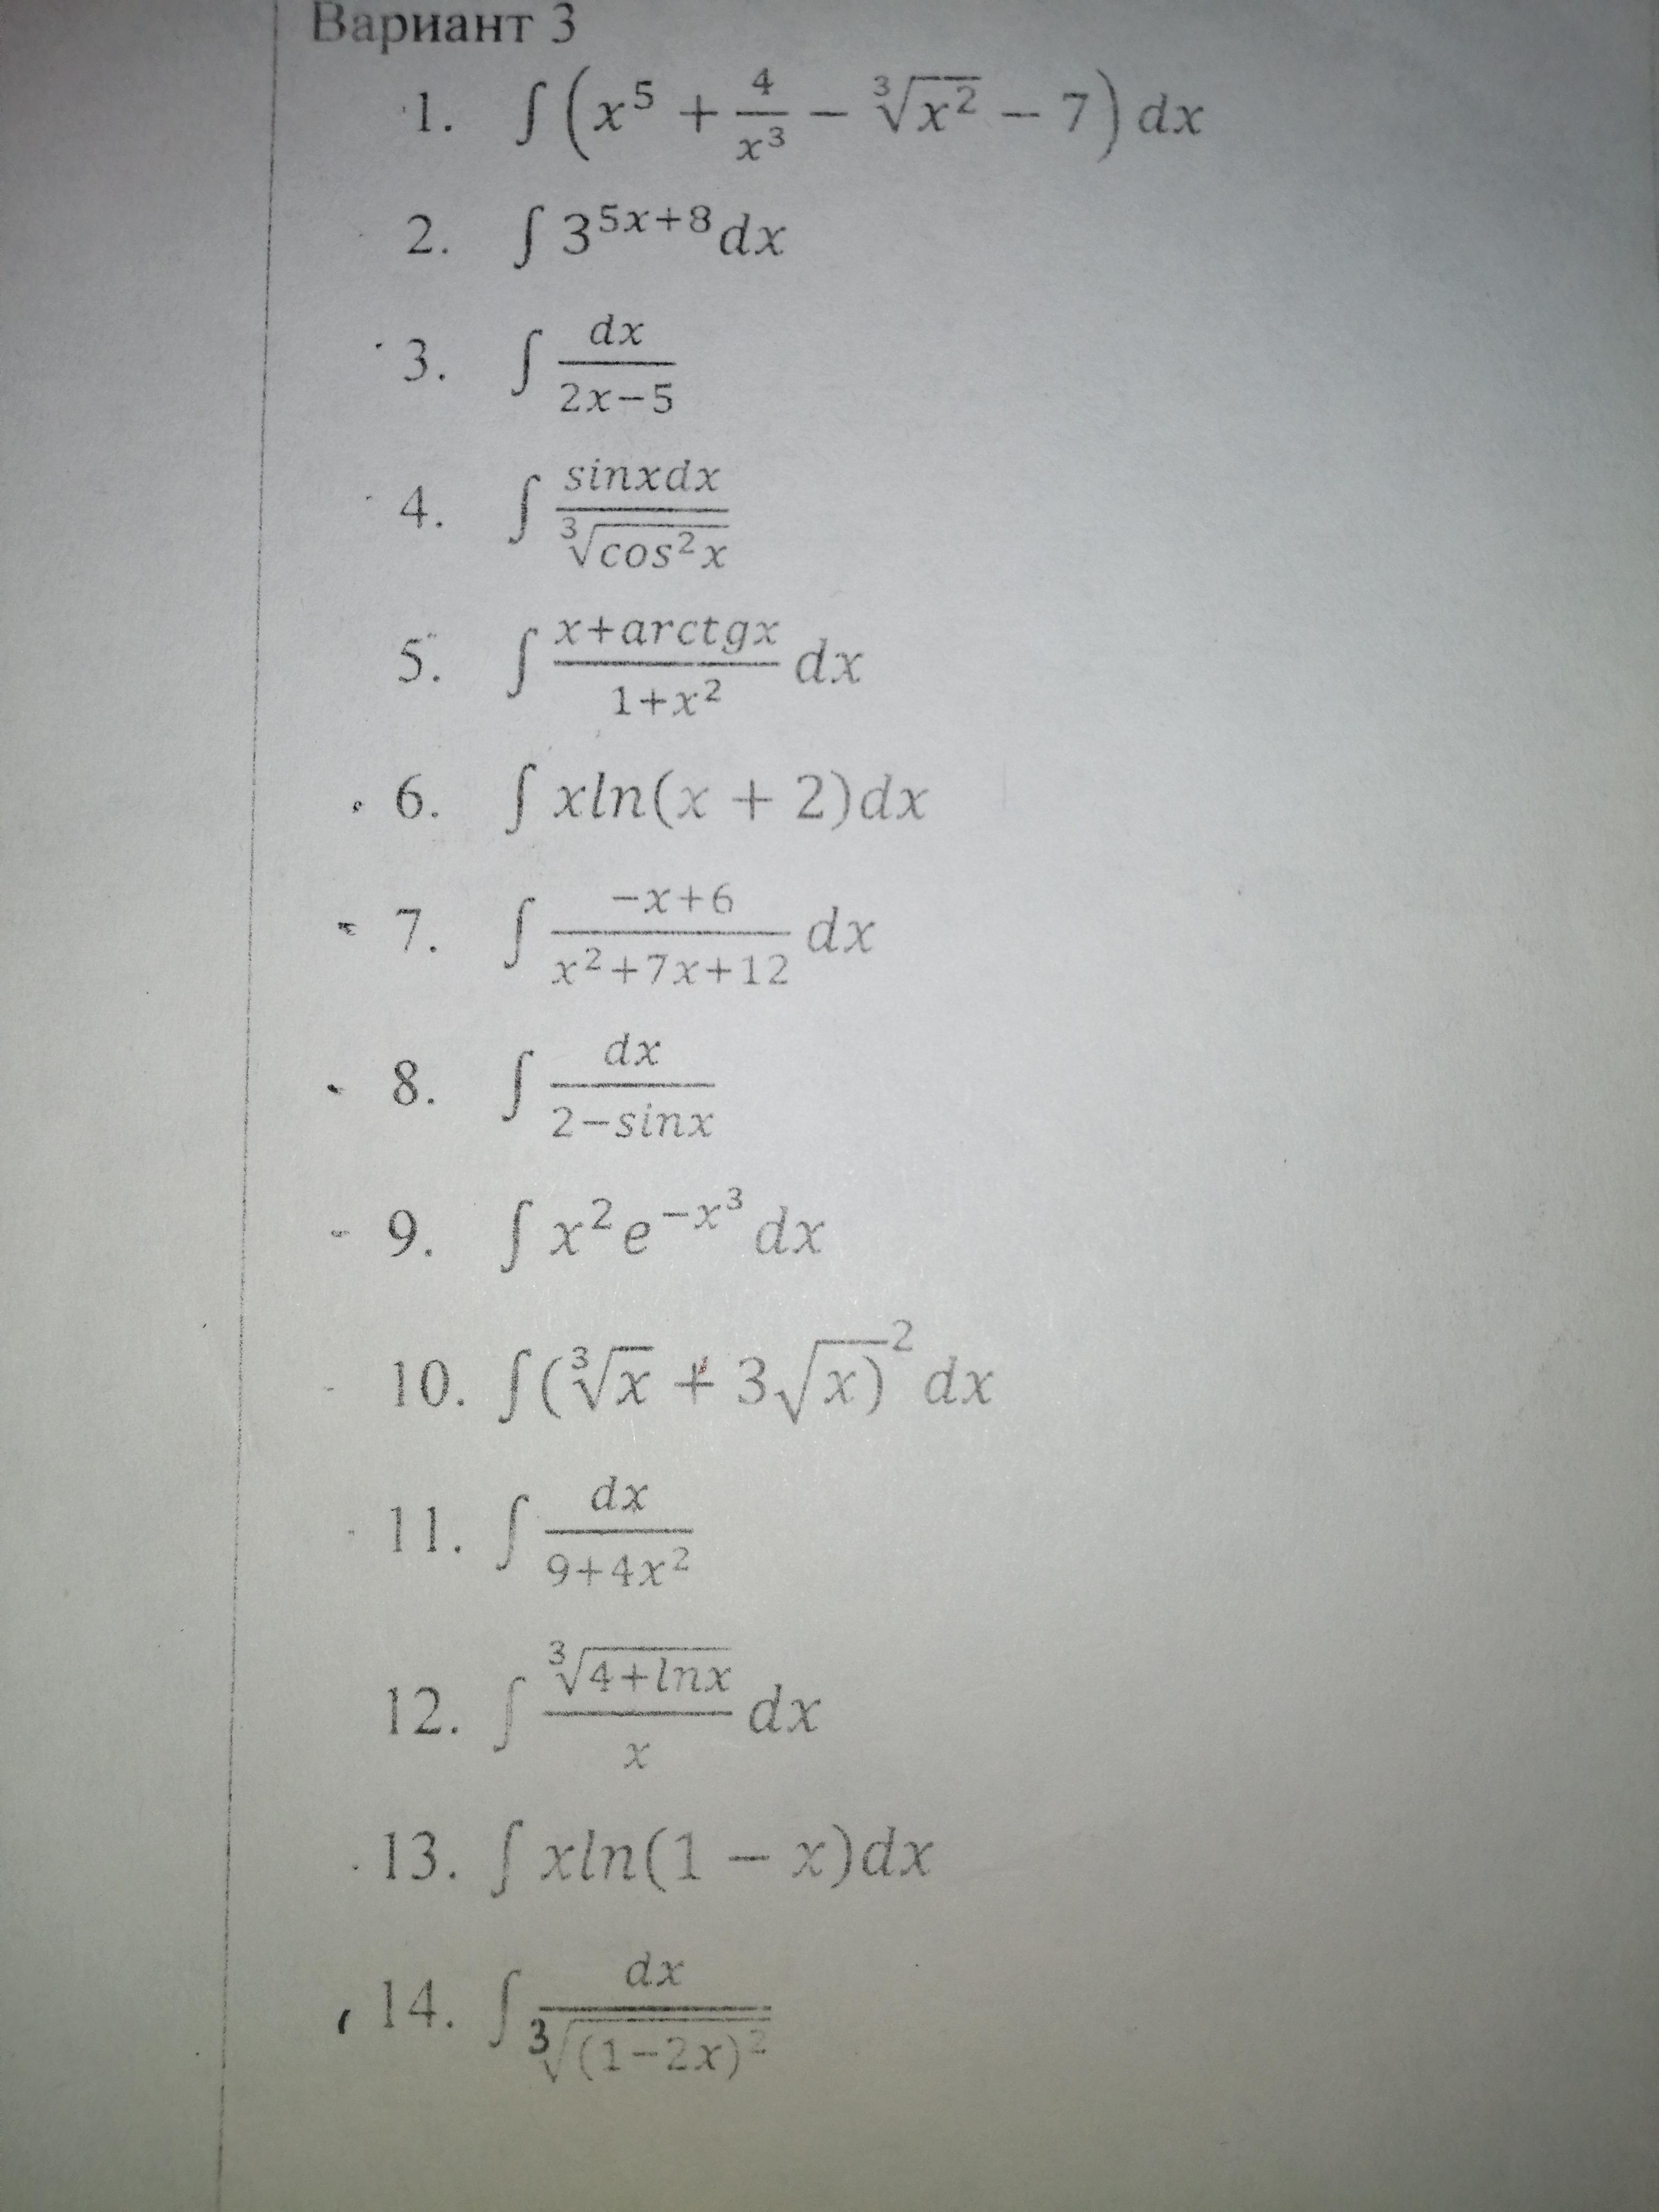 Вариант 3
1. ∫(x⁵ + 4/x³ − ∛x² − 7) dx
2. ∫ 3⁵ˣ⁺⁸dx
3. ∫ dx/(2x−5)
4. ∫ sinxdx/∛(cos²x)
5. ∫ (x+arctgx)/(1+x²) dx
6. ∫ xln(x + 2)dx
7. ∫ (−x+6)/(x²+7x+12) dx
8. ∫ dx/(2−sinx)
9. ∫ x²e^(−x³) dx
10. ∫(∛x + 3√x)² dx
11. ∫ dx/(9+4x²)
12. ∫ ∛(4+lnx)/x dx
13. ∫ xln(1 − x)dx
14. ∫ dx/∛((1−2x)²)